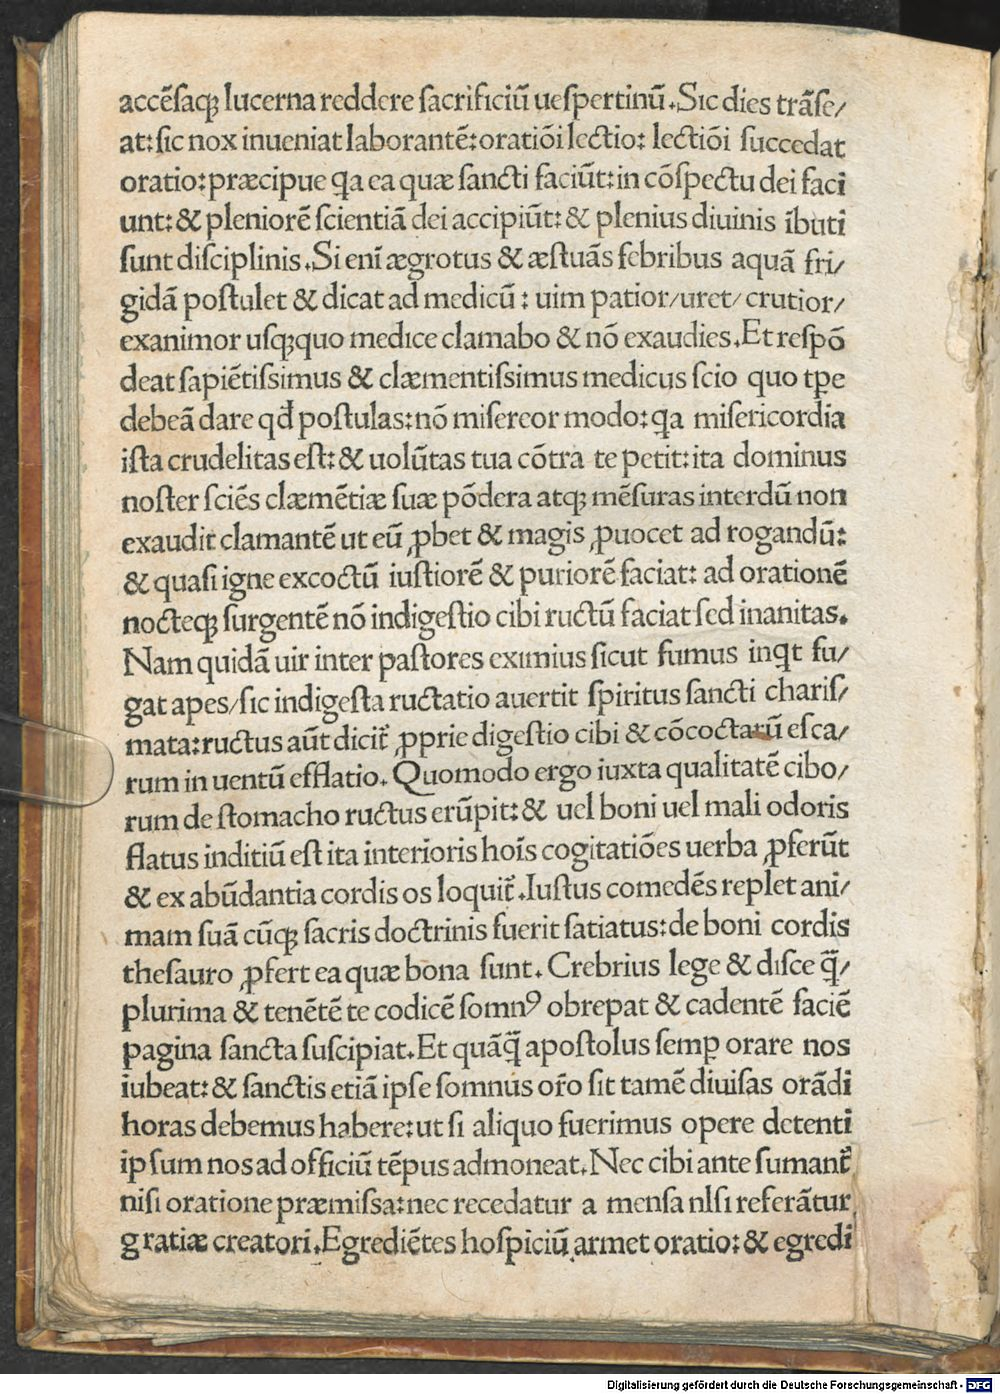 accēſaqꝫ lucerna reddere ſacrificiū ueſpertinū. Sic dies trāſe/
at: ſic nox inueniat laborantē: oratiōi lectio: lectiōi ſuccedat
oratio: præcipue ꝗa ea quæ ſancti faciūt: in cōſpectu dei faci
unt: & pleniorē ſcientiā dei accipiūt: & plenius diuinis ībuti
ſunt diſciplinis. Si enī ægrotus & æſtuās febribus aquā fri/
gidā poſtulet & dicat ad medicū: uim patior/uret/crutior/
exanimor uſqꝫquo medice clamabo & nō exaudies. Et reſpō
deat ſapiētiſſimus & clæmentiſſimus medicus ſcio quo tꝑe
debeā dare qđ poſtulas: nō miſereor modo: ꝗa miſericordia
iſta crudelitas eſt: & uolūtas tua cōtra te petit: ita dominus
noſter ſciēs clæmētiæ ſuæ pōdera atqꝫ mēſuras interdū non
exaudit clamantē ut eū ꝓbet & magis ꝓuocet ad rogandū:
& quaſi igne excoctū iuſtiorē & puriorē faciat: ad orationē
nocteqꝫ ſurgentē nō indigeſtio cibi ructū faciat ſed inanitas.
Nam quidā uir inter paſtores eximius ſicut fumus inꝗt fu/
gat apes/ſic indigeſta ructatio auertit ſpiritus ſancti chariſ/
mata: ructus aūt dicit̄ ꝓprie digeſtio cibi & cōcoctarū eſca/
rum in uentū efflatio. Quomodo ergo iuxta qualitatē cibo/
rum de ſtomacho ructus erūpit: & uel boni uel mali odoris
flatus inditiū eſt ita interioris hoīs cogitatiōes uerba ꝓferūt
& ex abūdantia cordis os loquit̄. Iuſtus comedēs replet ani/
mam ſuā cūqꝫ ſacris doctrinis fuerit ſatiatus: de boni cordis
theſauro ꝓfert ea quæ bona ſunt. Crebrius lege & diſce q̄/
plurima & tenētē te codicē ſomnꝰ obrepat & cadentē faciē
pagina ſancta ſuſcipiat. Et quāq̄ apoſtolus ſemꝑ orare nos
iubeat: & ſanctis etiā ipſe ſomnus or̄o ſit tamē diuiſas orādi
horas debemus habere: ut ſi aliquo fuerimus opere detenti
ipſum nos ad officiū tēpus admoneat. Nec cibi ante ſumant̄
niſi oratione præmiſſa: nec recedatur a menſa nlſi referātur
gratiæ creatori. Egrediētes hoſpiciū armet oratio: & egredi
Digitalisierung gefördert durch die Deutsche Forschungsgemeinschaft - DFG